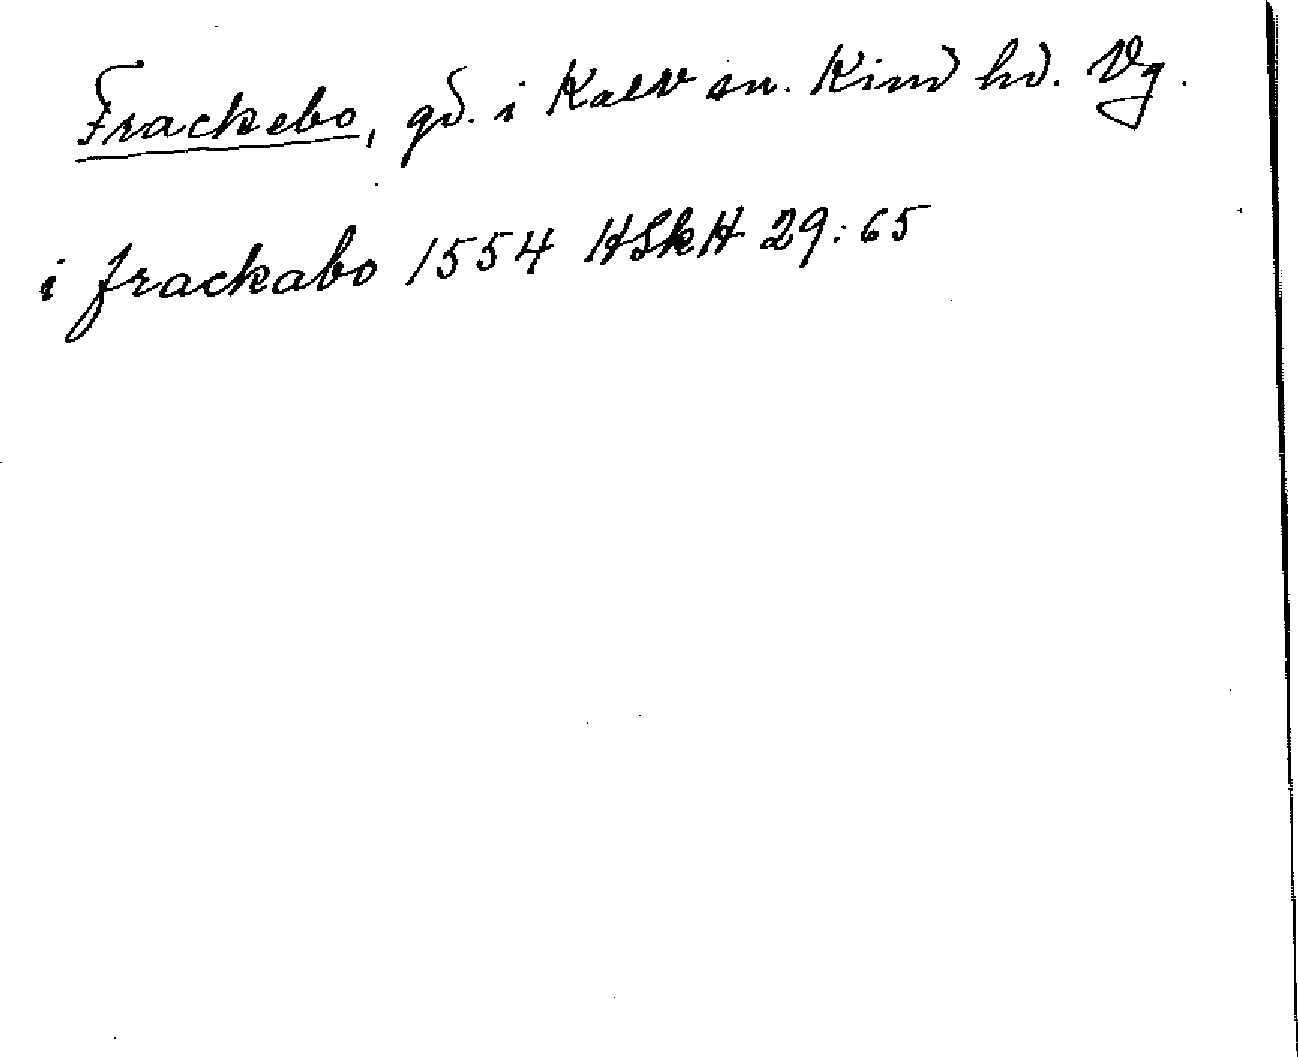 Frackebo, gd. i Kalv sn. Kind hd. Vg.
i frackabo 1554 HSkH 29:65